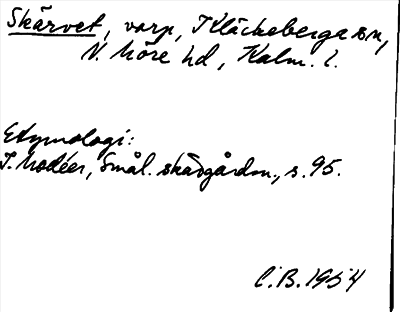 Skärvet, varp, Kläckeberga sn,
N. Möre hd, Kalm. l.
Etymologi:
I. Modéer, Smål. skärgårdsn., s. 95.
C.B. 1954